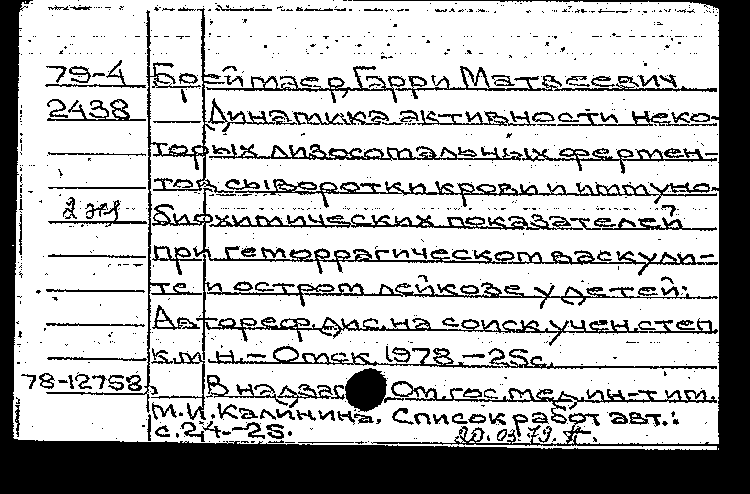 79-4 Бреймаер, Гарри Матвеевич.
2438 Динамика активности неко-
торых лизосомальных фермен-
тов сыворотки крови и иммуно-
2 экз биохимических показателей
при геморрагическом васкули-
те и остром лейкозе у детей:
Автореф. дис. на соиск. учен. степ.
к.м.н. - Омск, 1978. - 25 с.
78-12758 В надзаг. Ом. гос. мед. ин-т им.
М.И. Калинина. Список работ авт.:
с. 24.-25. 20.03.79.